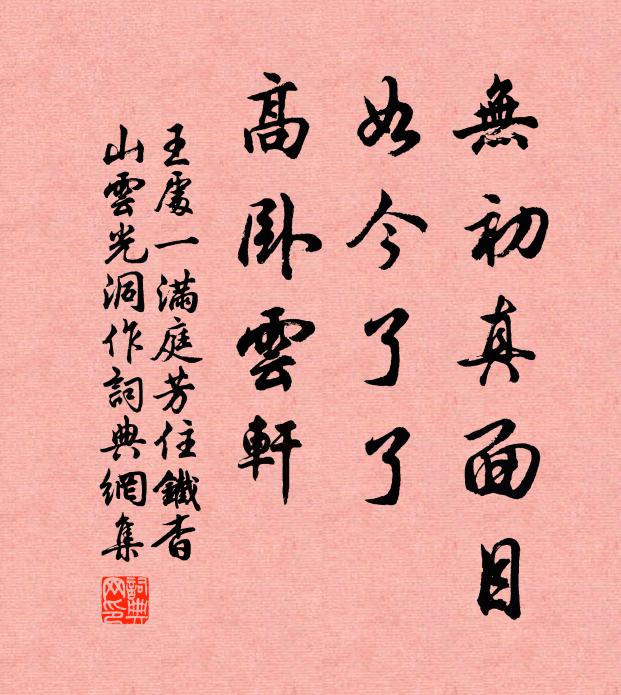 無初真面目
如今了了
高臥雲軒
王處一滿庭芳住鐵查
山雲光洞作詞典網集
詞典網印